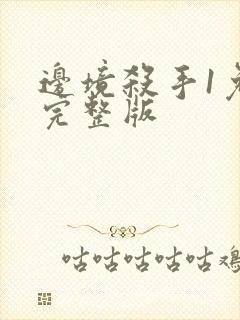 邊境殺手1免
完整版
咕咕咕咕咕鸡